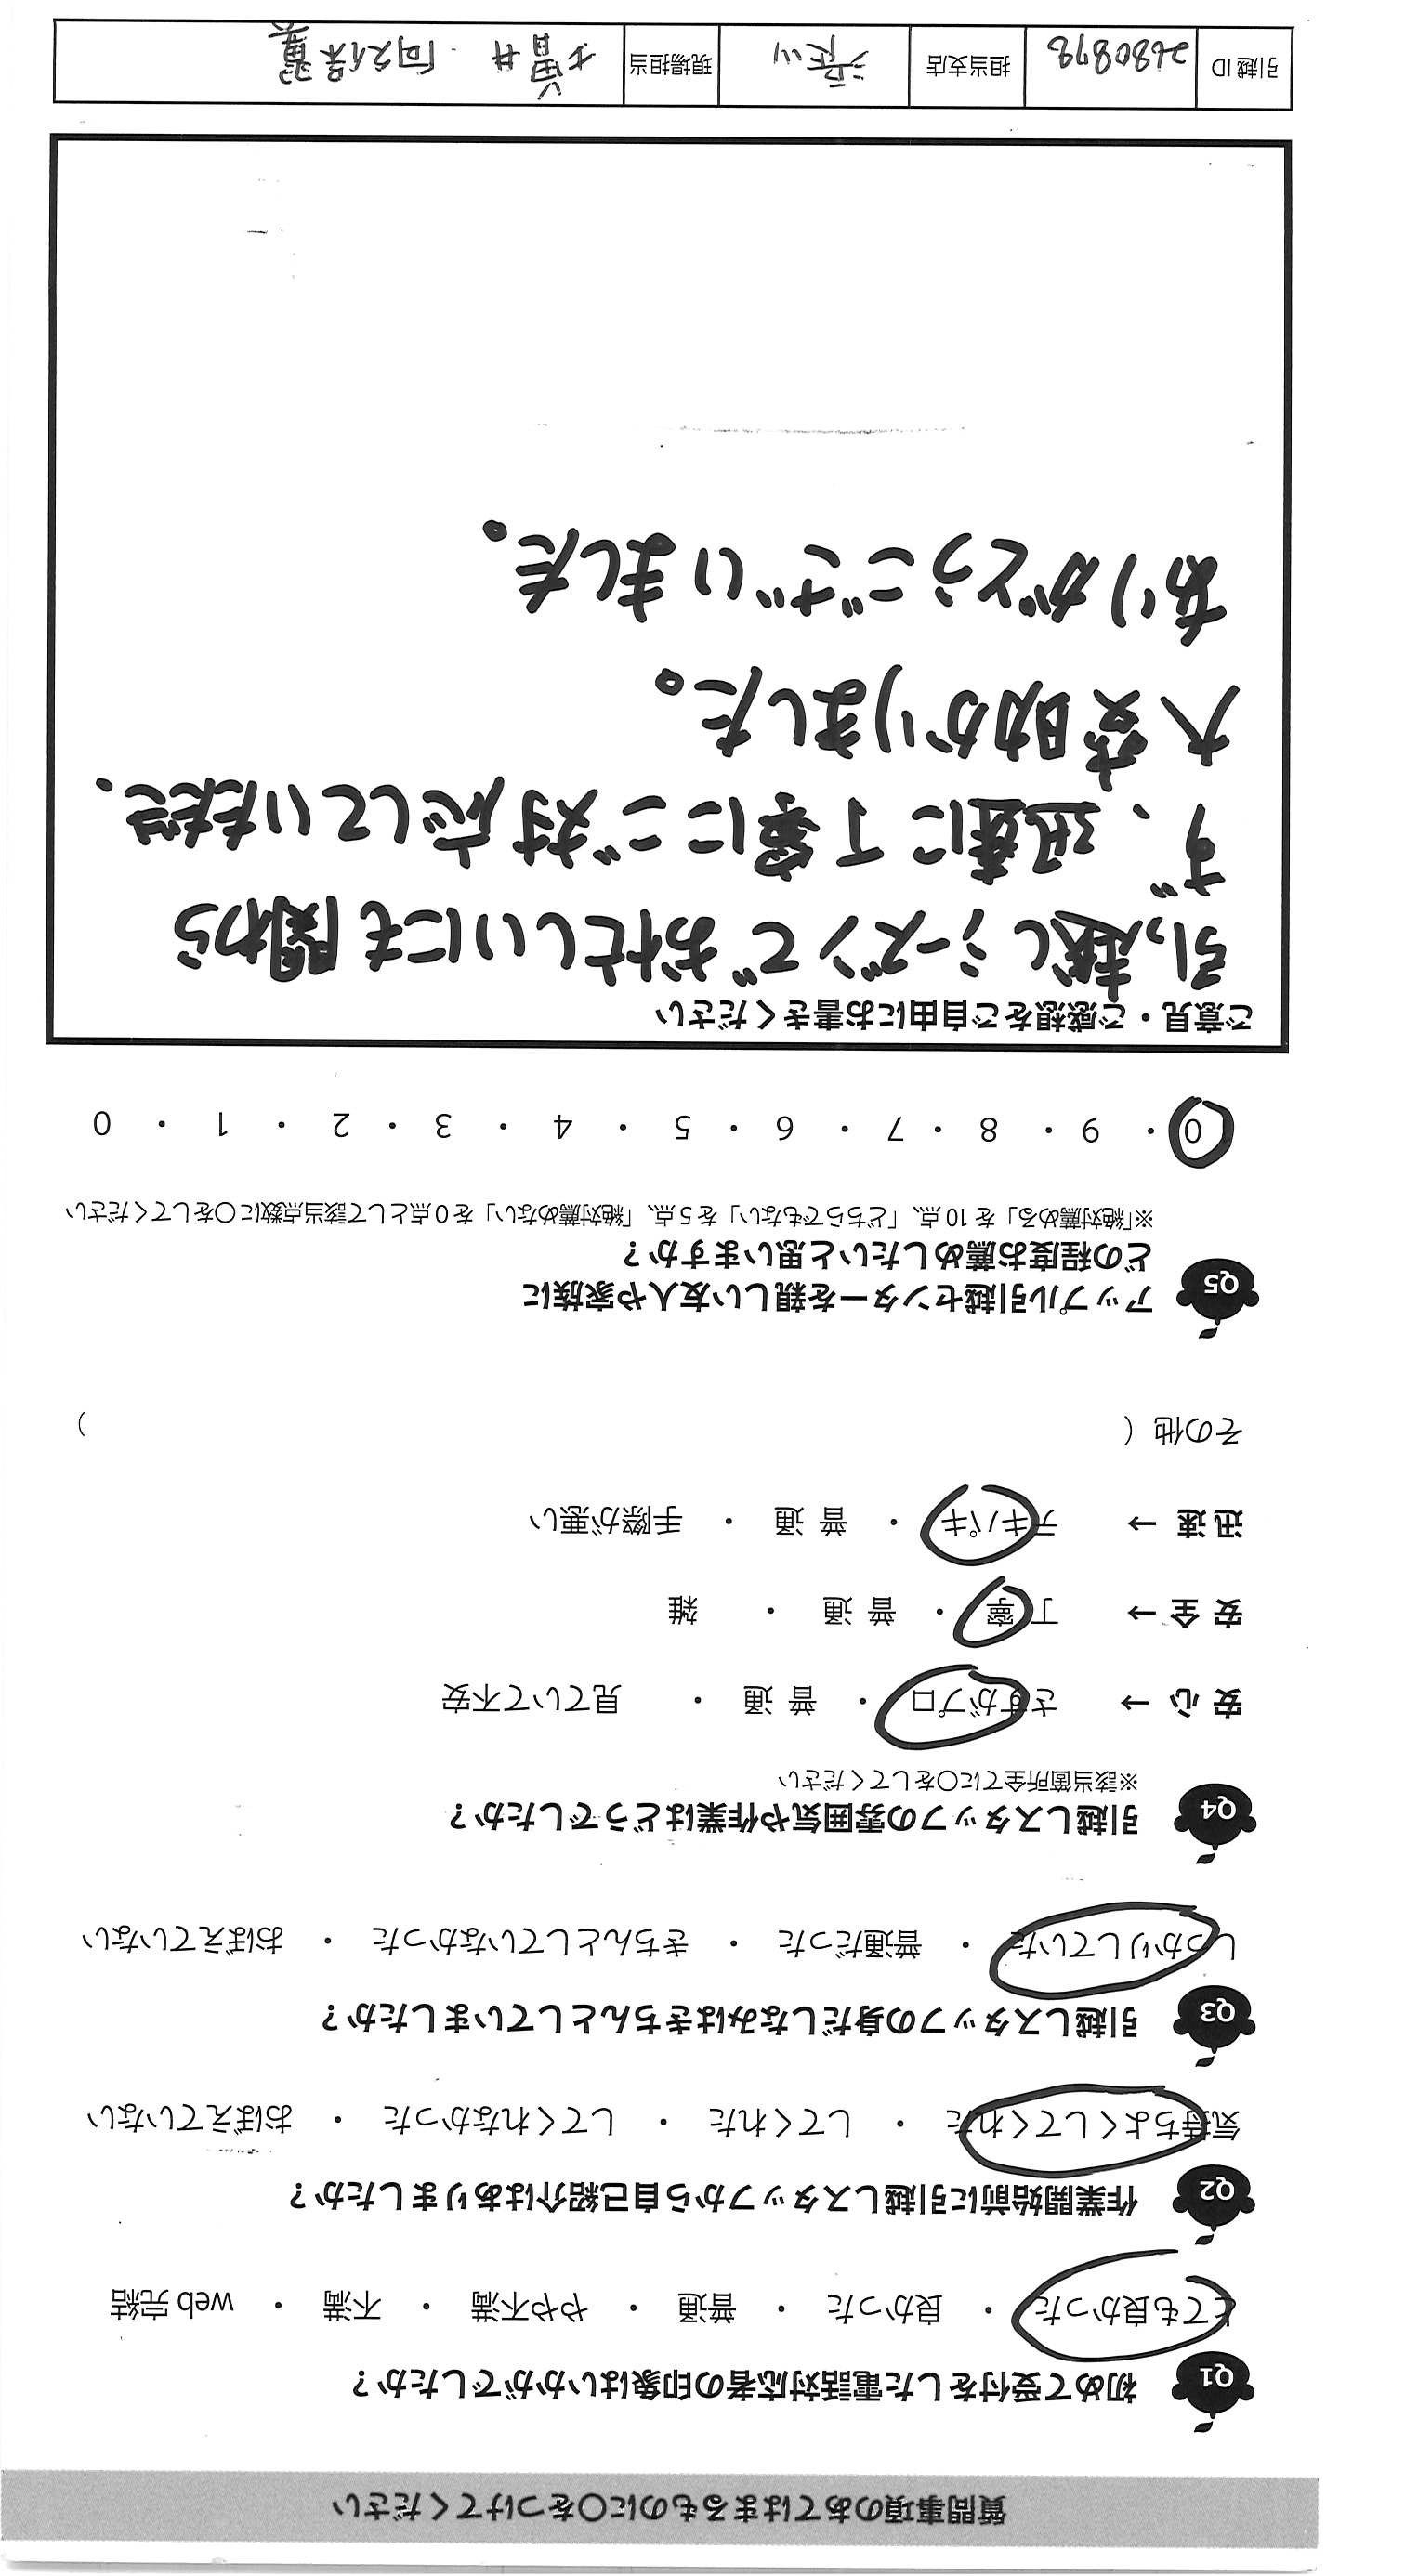 質問事項のあてはまるものに〇をつけてください
Q1 初めて受付をした電話対応者の印象はいかがでしたか？
とても良かった ・ 良かった ・ 普通 ・ やや不満 ・ 不満 ・ web 完結
Q2 作業開始前に引越しスタッフから自己紹介はありましたか？
気持ちよくしてくれた ・ してくれた ・ してくれなかった ・ おぼえていない
Q3 引越しスタッフの身だしなみはきちんとしていましたか？
しっかりしていた ・ 普通だった ・ きちんとしていなかった ・ おぼえていない
Q4 引越しスタッフの雰囲気や作業はどうでしたか？
※該当箇所全てに〇をしてください
安 心 → さすがプロ ・ 普 通 ・ 見ていて不安
安 全 → 丁 寧 ・ 普 通 ・ 雑
迅 速 → テキパキ ・ 普 通 ・ 手際が悪い
その他（ ）
Q5 アップル引越センターを親しい友人や家族に
どの程度お薦めしたいと思いますか？
※「絶対薦める」を 10 点、「どちらでもない」を 5 点、「絶対薦めない」を 0 点として該当点数に〇をしてください
10 ・ 9 ・ 8 ・ 7 ・ 6 ・ 5 ・ 4 ・ 3 ・ 2 ・ 1 ・ 0
ご意見・ご感想をご自由にお書きください
引っ越しシーズンでお忙しいにも関わら
ず、迅速に丁寧にご対応していただき、
大変助かりました。
ありがとうございました。
引越 ID 2680878 担当支店 現場担当